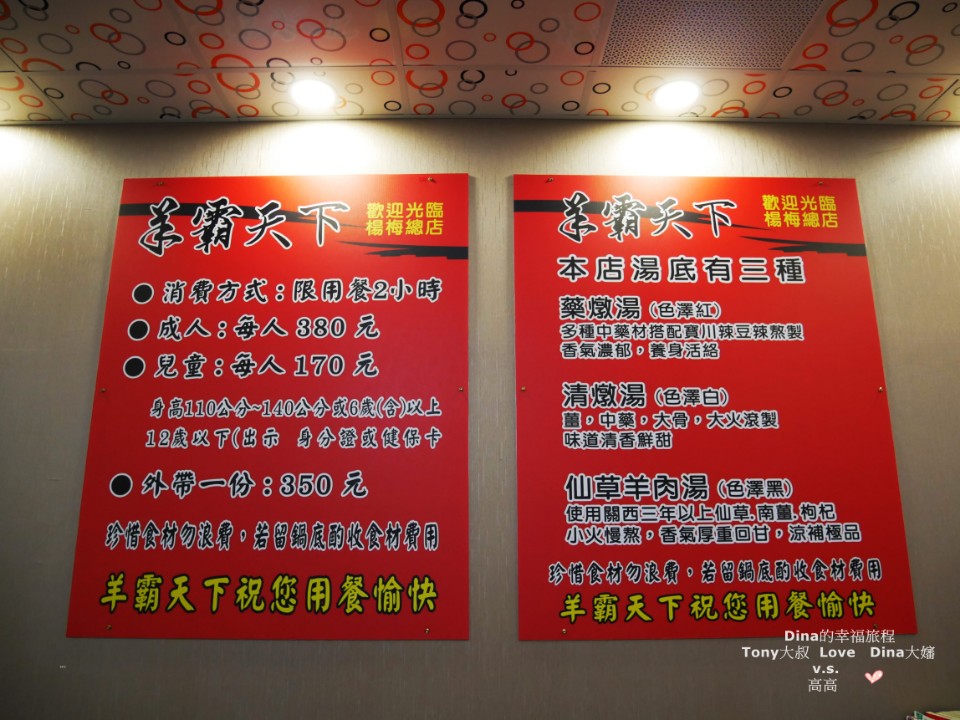 羊霸天下
歡迎光臨
楊梅總店
● 消費方式：限用餐2小時
● 成人：每人 380 元
● 兒童：每人 170 元
身高110公分~140公分或6歲(含)以上
12歲以下(出示 身分證或健保卡
● 外帶一份：350 元
珍惜食材勿浪費，若留鍋底酌收食材費用
羊霸天下祝您用餐愉快
羊霸天下
歡迎光臨
楊梅總店
本店湯底有三種
藥燉湯(色澤紅)
多種中藥材搭配寶川辣豆辣熬製
香氣濃郁，養身活絡
清燉湯(色澤白)
薑，中藥，大骨，大火滾製
味道清香鮮甜
仙草羊肉湯(色澤黑)
使用關西三年以上仙草.南薑.枸杞
小火慢熬，香氣厚重回甘，涼補極品
珍惜食材勿浪費，若留鍋底酌收食材費用
羊霸天下祝您用餐愉快
Dina的幸福旅程
Tony大叔 Love Dina大嬸
v.s.
高高